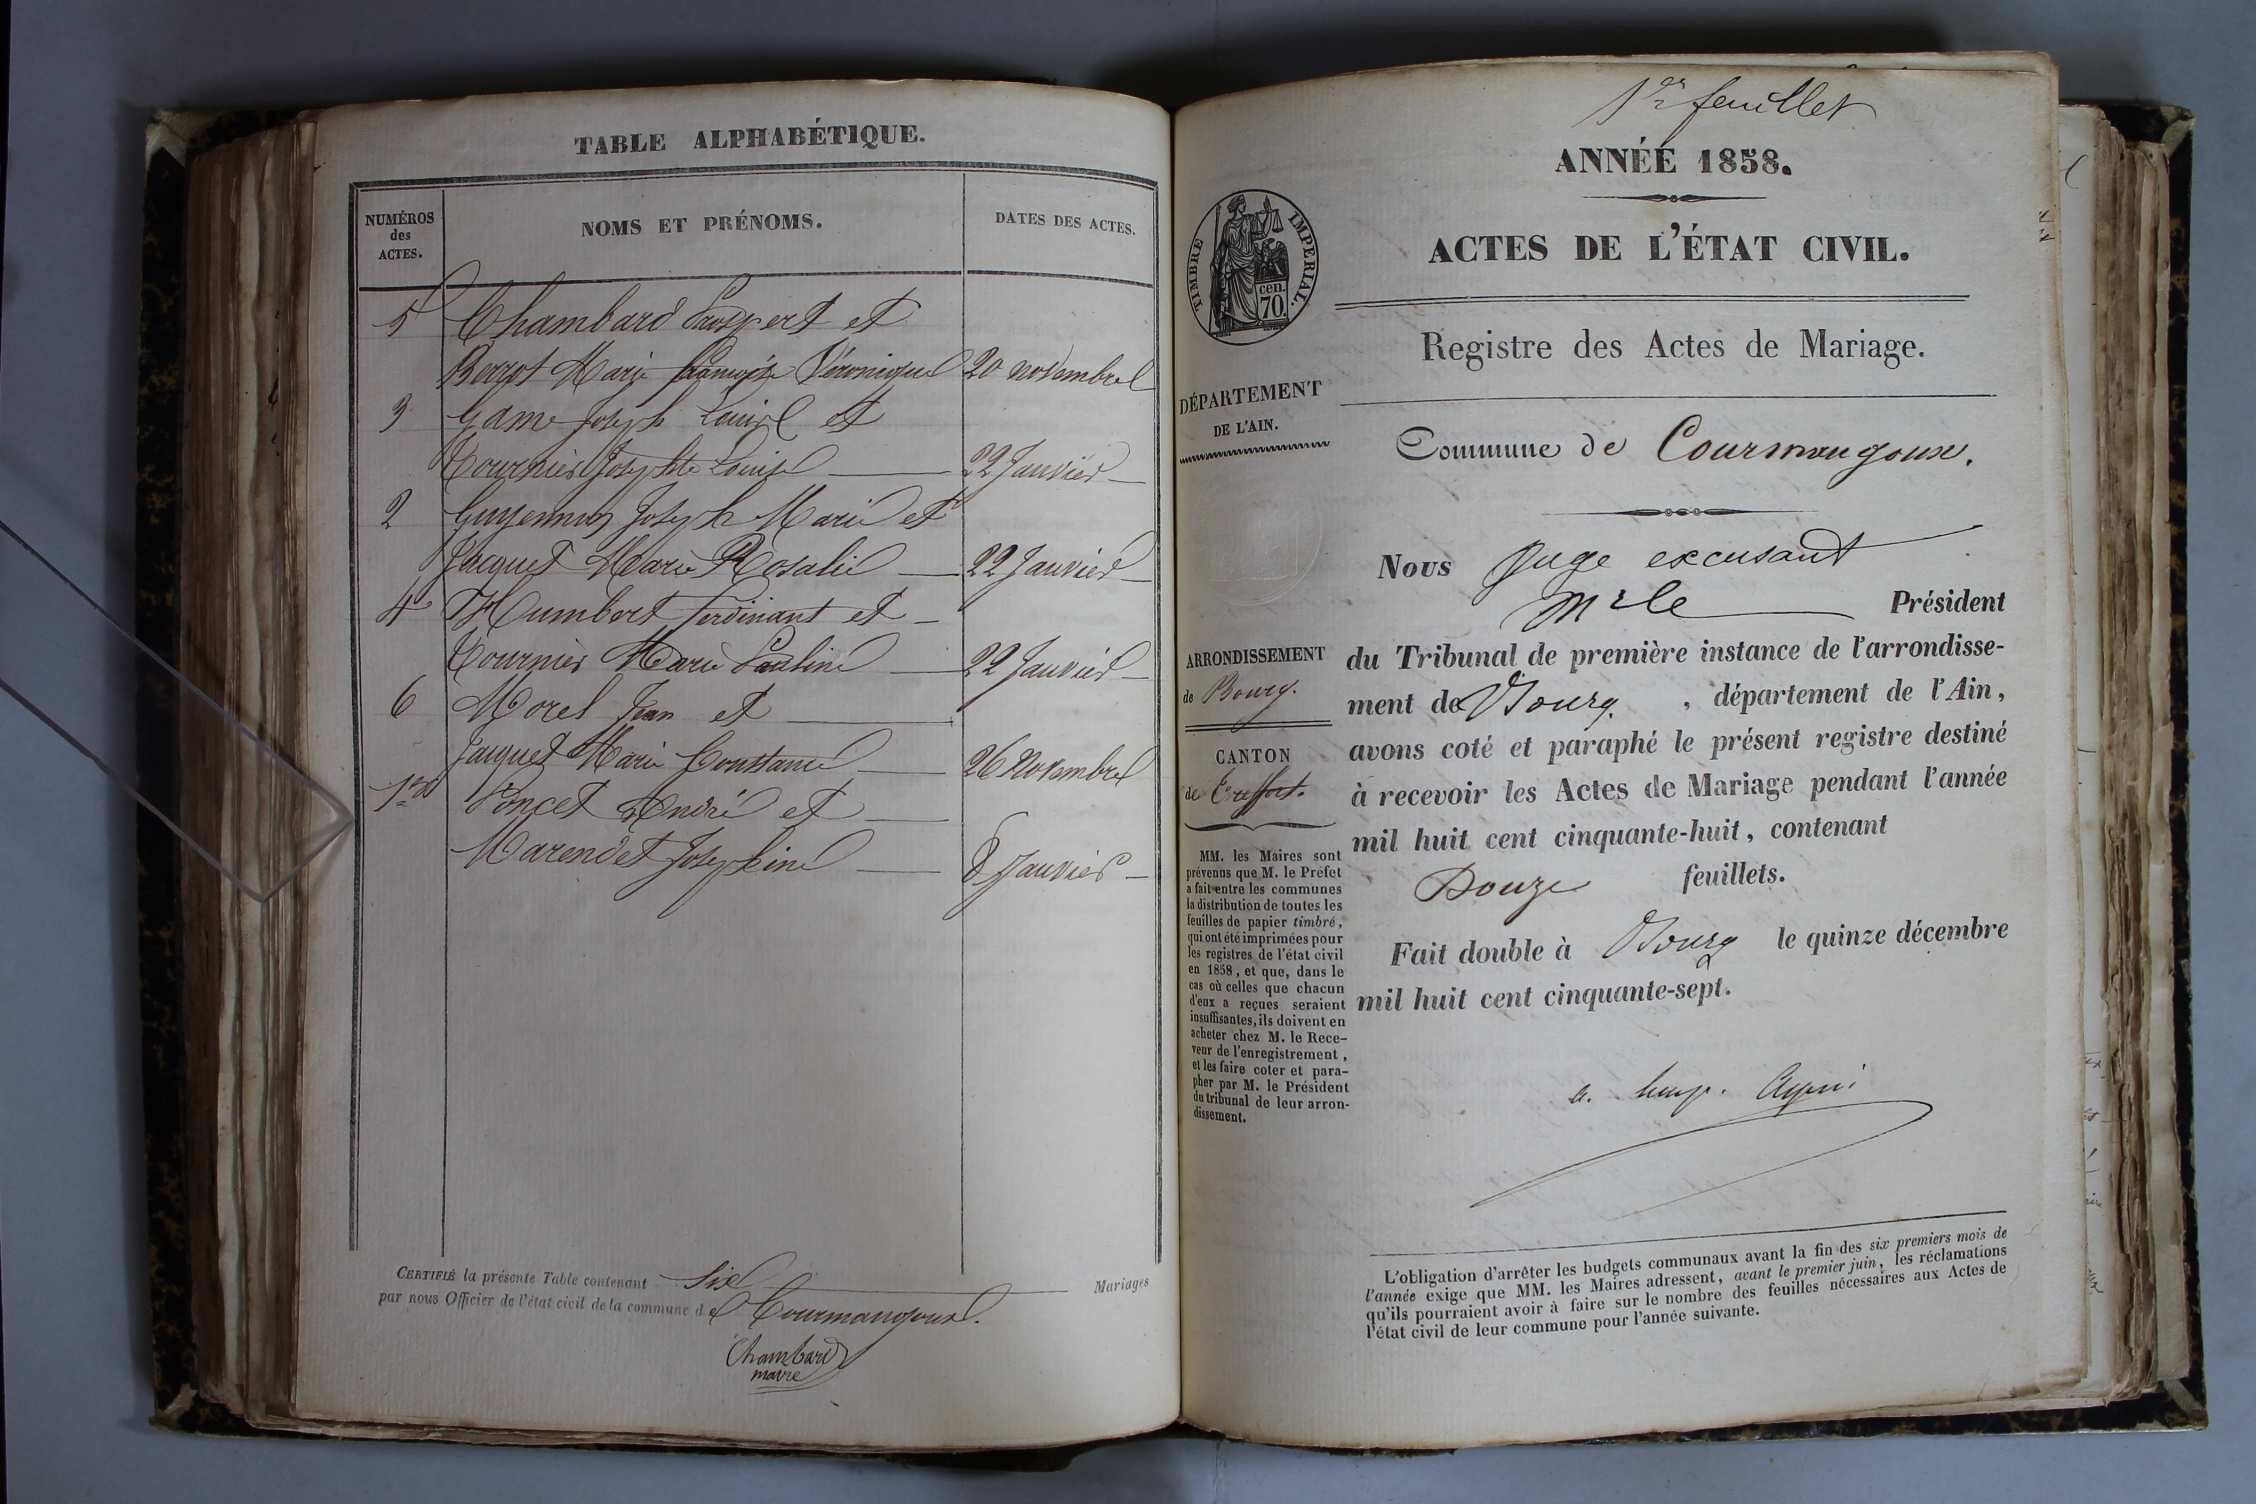 TABLE ALPHABÉTIQUE.
NUMÉROS des ACTES.
NOMS ET PRÉNOMS.
DATES DES ACTES.
5 Chambard Prospert et
Berrot Marie Françoise Véronique 20 novembre
3 Game Joseph Louis et
Tournier Josephte Louise 22 Janvier
2 Guyennon Joseph Marie et
Jacquet Marie Rosalie 22 Janvier
4 Humbert Ferdinant et
Tournier Marie Pauline 22 Janvier
6 Morel Jean et
Jacquet Marie Constance 26 Novembre
1er Poncet André et
Marendet Josephine 8 Janvier
CERTIFIÉ la présente Table contenant Six Mariages
par nous Officier de l'état civil de la commune de Courmangoux.
Chambard
maire
1er feuillet
ANNÉE 1858.
ACTES DE L'ÉTAT CIVIL.
TIMBRE IMPÉRIAL.
cen.
70.
Registre des Actes de Mariage.
DÉPARTEMENT
DE L'AIN.
Commune de Courmangoux.
ARRONDISSEMENT
de Bourg.
CANTON
de Treffort.
MM. les Maires sont
prévenus que M. le Préfet
a fait entre les communes
la distribution de toutes les
feuilles de papier timbré,
qui ont été imprimées pour
les registres de l'état civil
en 1858, et que, dans le
cas où celles que chacun
d'eux a reçues seraient
insuffisantes, ils doivent en
acheter chez M. le Rece-
veur de l'enregistrement,
et les faire coter et para-
pher par M. le Président
du tribunal de leur arron-
dissement.
Nous Juge excusant
Mr le Président
du Tribunal de première instance de l'arrondisse-
ment de Bourg, département de l'Ain,
avons coté et paraphé le présent registre destiné
à recevoir les Actes de Mariage pendant l'année
mil huit cent cinquante-huit, contenant
Douze feuillets.
Fait double à Bourg le quinze décembre
mil huit cent cinquante-sept.
L'obligation d'arrêter les budgets communaux avant la fin des six premiers mois de
l'année exige que MM. les Maires adressent, avant le premier juin, les réclamations
qu'ils pourraient avoir à faire sur le nombre des feuilles nécessaires aux Actes de
l'état civil de leur commune pour l'année suivante.